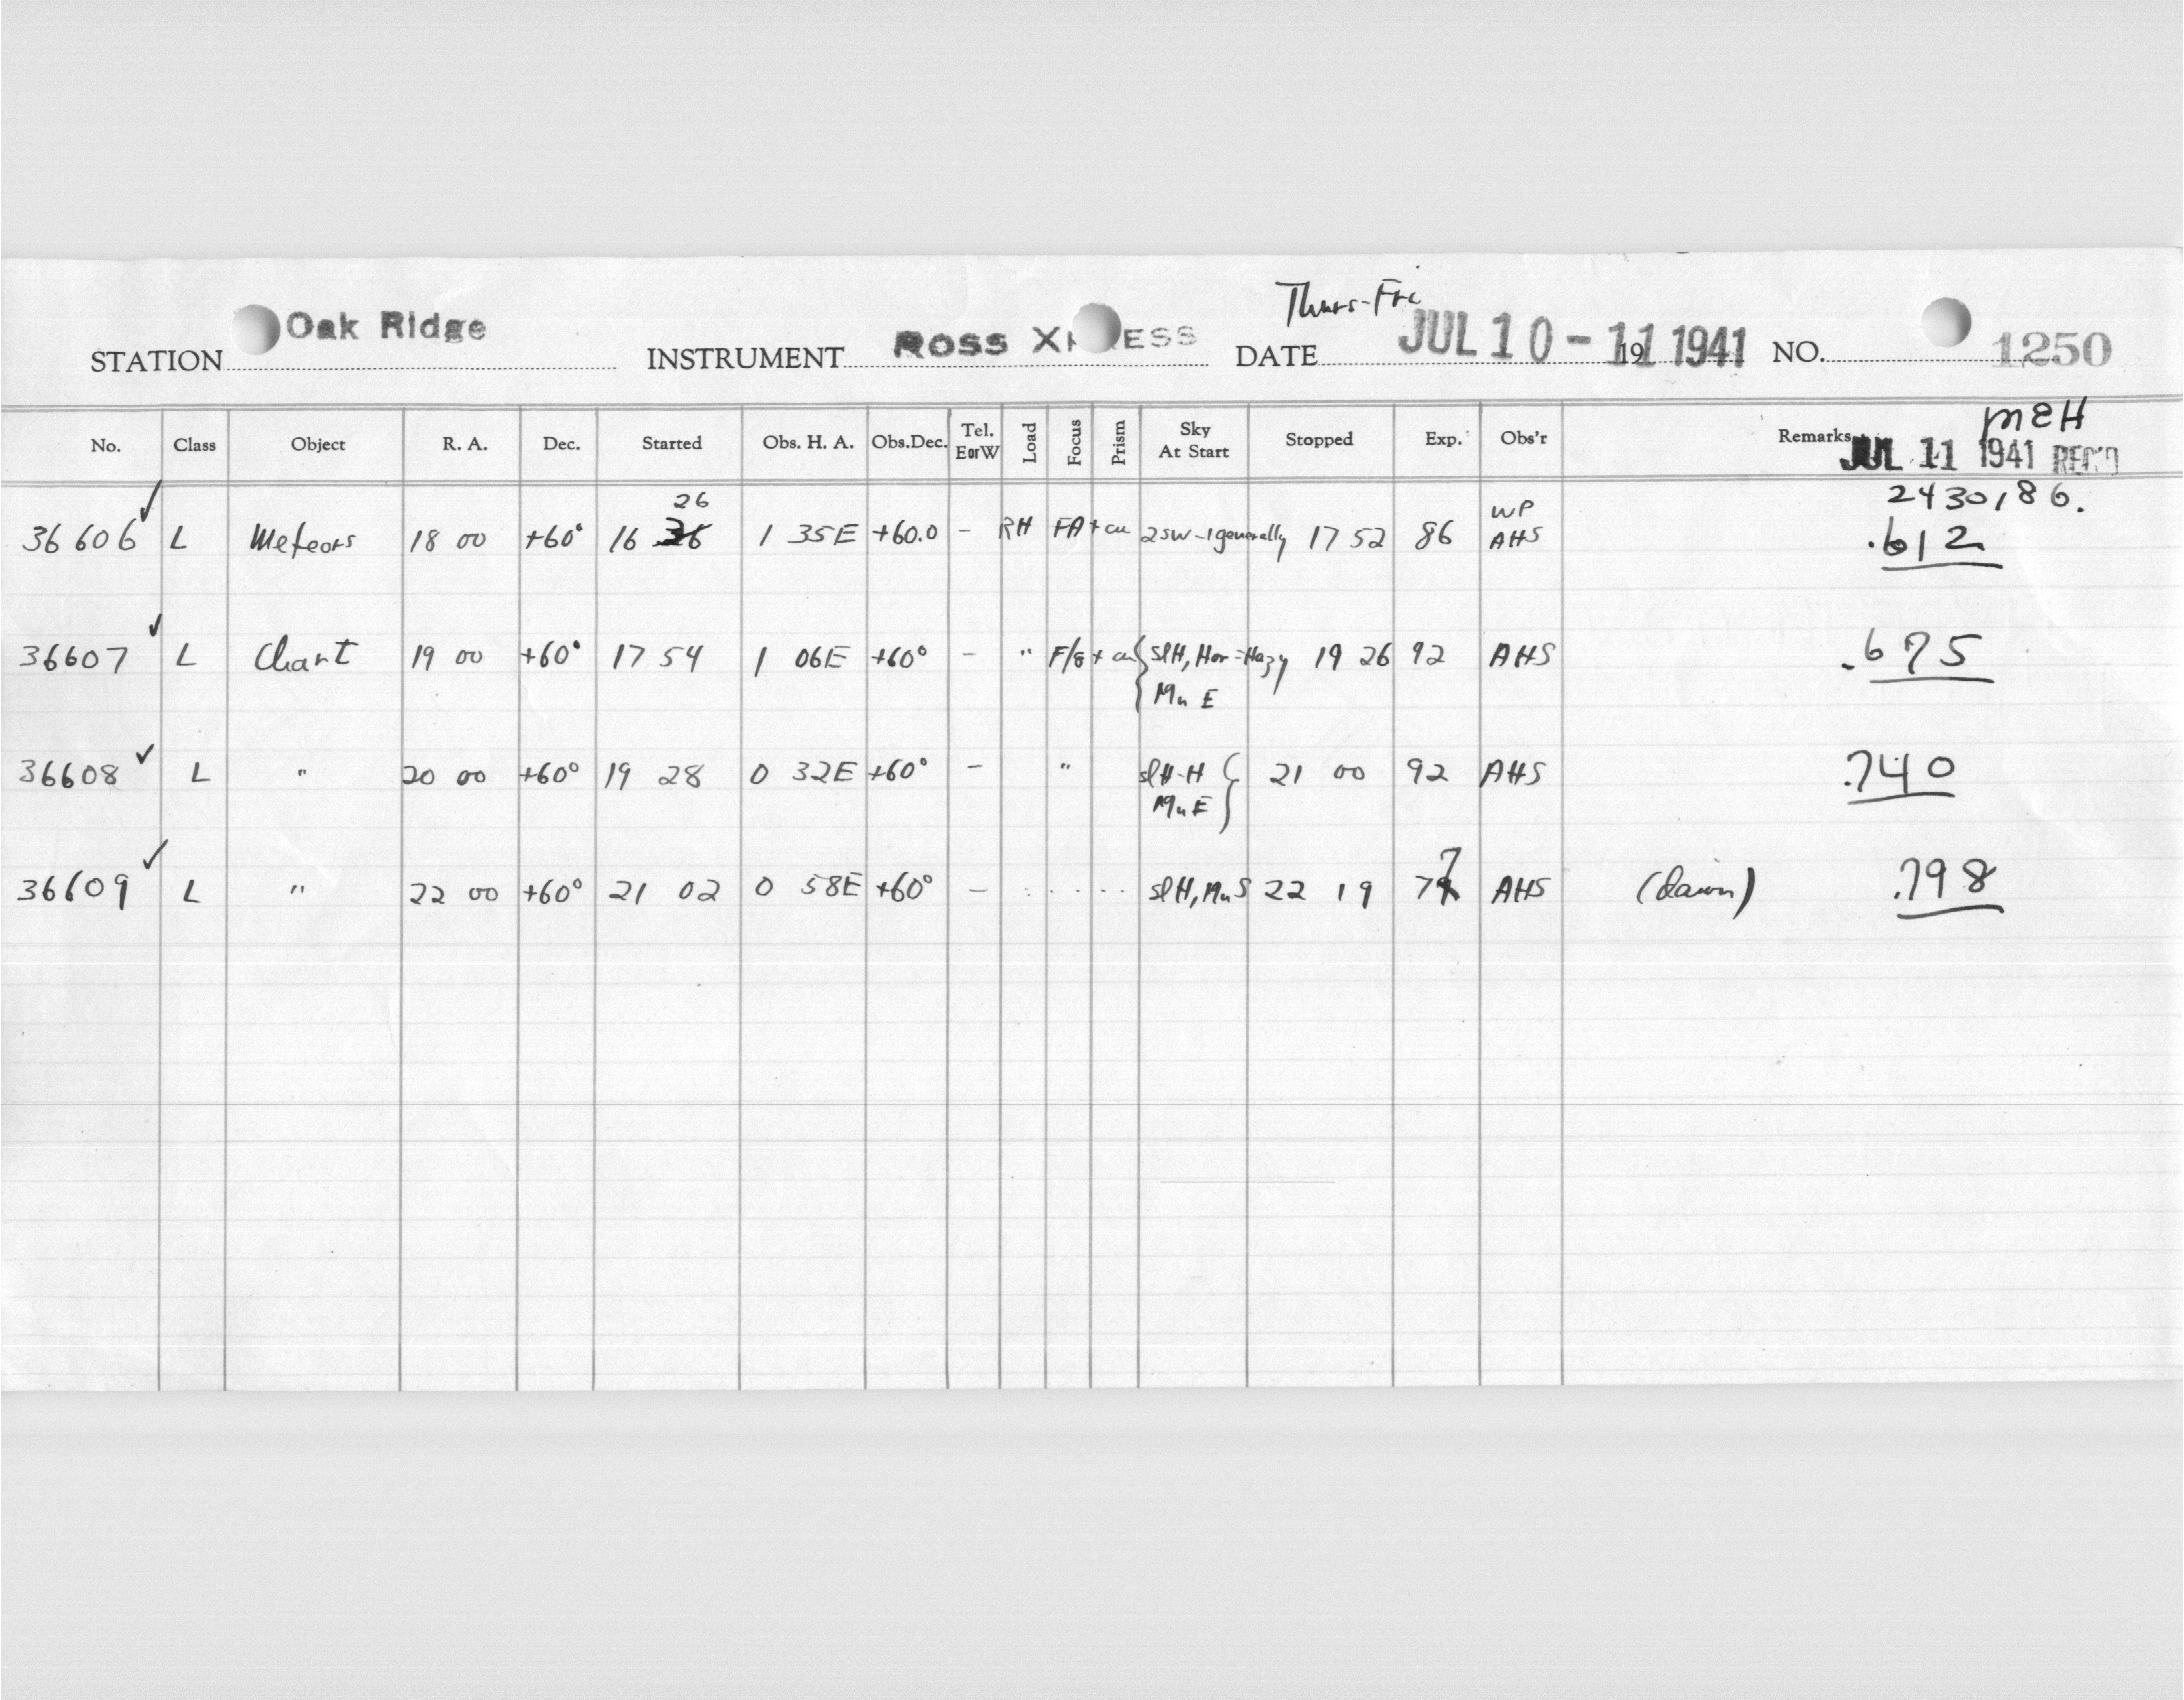 Thurs-Fri
STATION Oak Ridge INSTRUMENT ROSS X ESS DATE JUL 10 - 11 1941 19 NO. 1250
No. Class Object R. A. Dec. Started Obs. H. A. Obs.Dec. Tel. EorW Load Focus Prism Sky At Start Stopped Exp. Obs'r Remarks MEH
JUL 11 1941 REC'D
2430186.
36606 ✓ L Meteors 18 00 +60° 16 26 1 35E +60.0 - RH FA + cu 2SW-1generally 17 52 86 WP AHS .612
36607 ✓ L Chart 19 00 +60° 17 54 1 06E +60° - " F/8 + cu { SlH, Hor=Hazy 19 26 92 AHS .675
Mn E
36608 ✓ L " 20 00 +60° 19 28 0 32E +60° - " SlH-H 21 00 92 AHS .740
Mn E }
36609 ✓ L " 22 00 +60° 21 02 0 58E +60° - . . . . . SlH, Mn S 22 19 77 AHS (dawn) .798